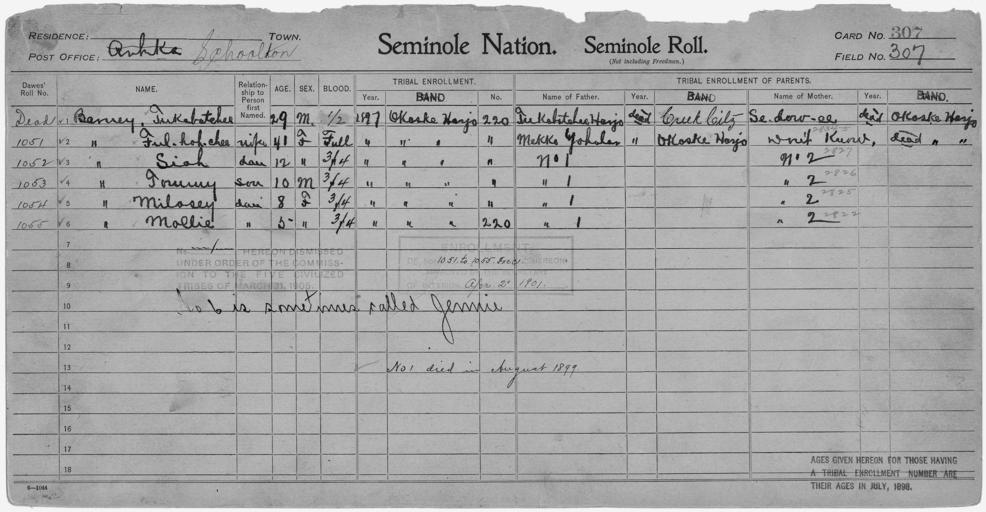 RESIDENCE: TOWN.
POST OFFICE: Arhka Schoolton
Seminole Nation. Seminole Roll.
(Not including Freedmen.)
CARD NO. 307
FIELD NO. 307
Dawes' Roll No. NAME. Relationship to Person first Named. AGE. SEX. BLOOD. TRIBAL ENROLLMENT. TRIBAL ENROLLMENT OF PARENTS.
Year. BAND No. Name of Father. Year. BAND Name of Mother. Year. BAND.
Dead 1 Barney, Tukabatchee 29 M. 1/2 1897 Okoske Harjo 220 Tukabatchee Harjo dead Creek City Se-dow-ee dead Okoske Harjo
1051 2 " Ful-hop-chee wife 41 F Full " " " " Mekko Yoholar " Okoske Harjo Don't Know, dead " "
1052 3 " Siah dau 12 " 3/4 " " " " No 1 No 2 2827
1053 4 " Tommy son 10 M 3/4 " " " " " 1 " 2 2826
1054 5 " Milosey dau 8 F 3/4 " " " " " 1 " 2 2825
1055 6 " Mollie " 5 " 3/4 " " " 220 " 1 " 2 2822
7
No. 1 HEREON DISMISSED
UNDER ORDER OF THE COMMISSION TO THE FIVE CIVILIZED
TRIBES OF MARCH 31, 1905.
ENROLLMENT
OF NOS. 1051 to 1055 Inc. HEREON
Apr. 2 1901.
8
9
10 No 6 is sometimes called Jennie
11
12
13 No 1 died in August 1899
14
15
16
17
18
6—1044
AGES GIVEN HEREON FOR THOSE HAVING
A TRIBAL ENROLLMENT NUMBER ARE
THEIR AGES IN JULY, 1898.